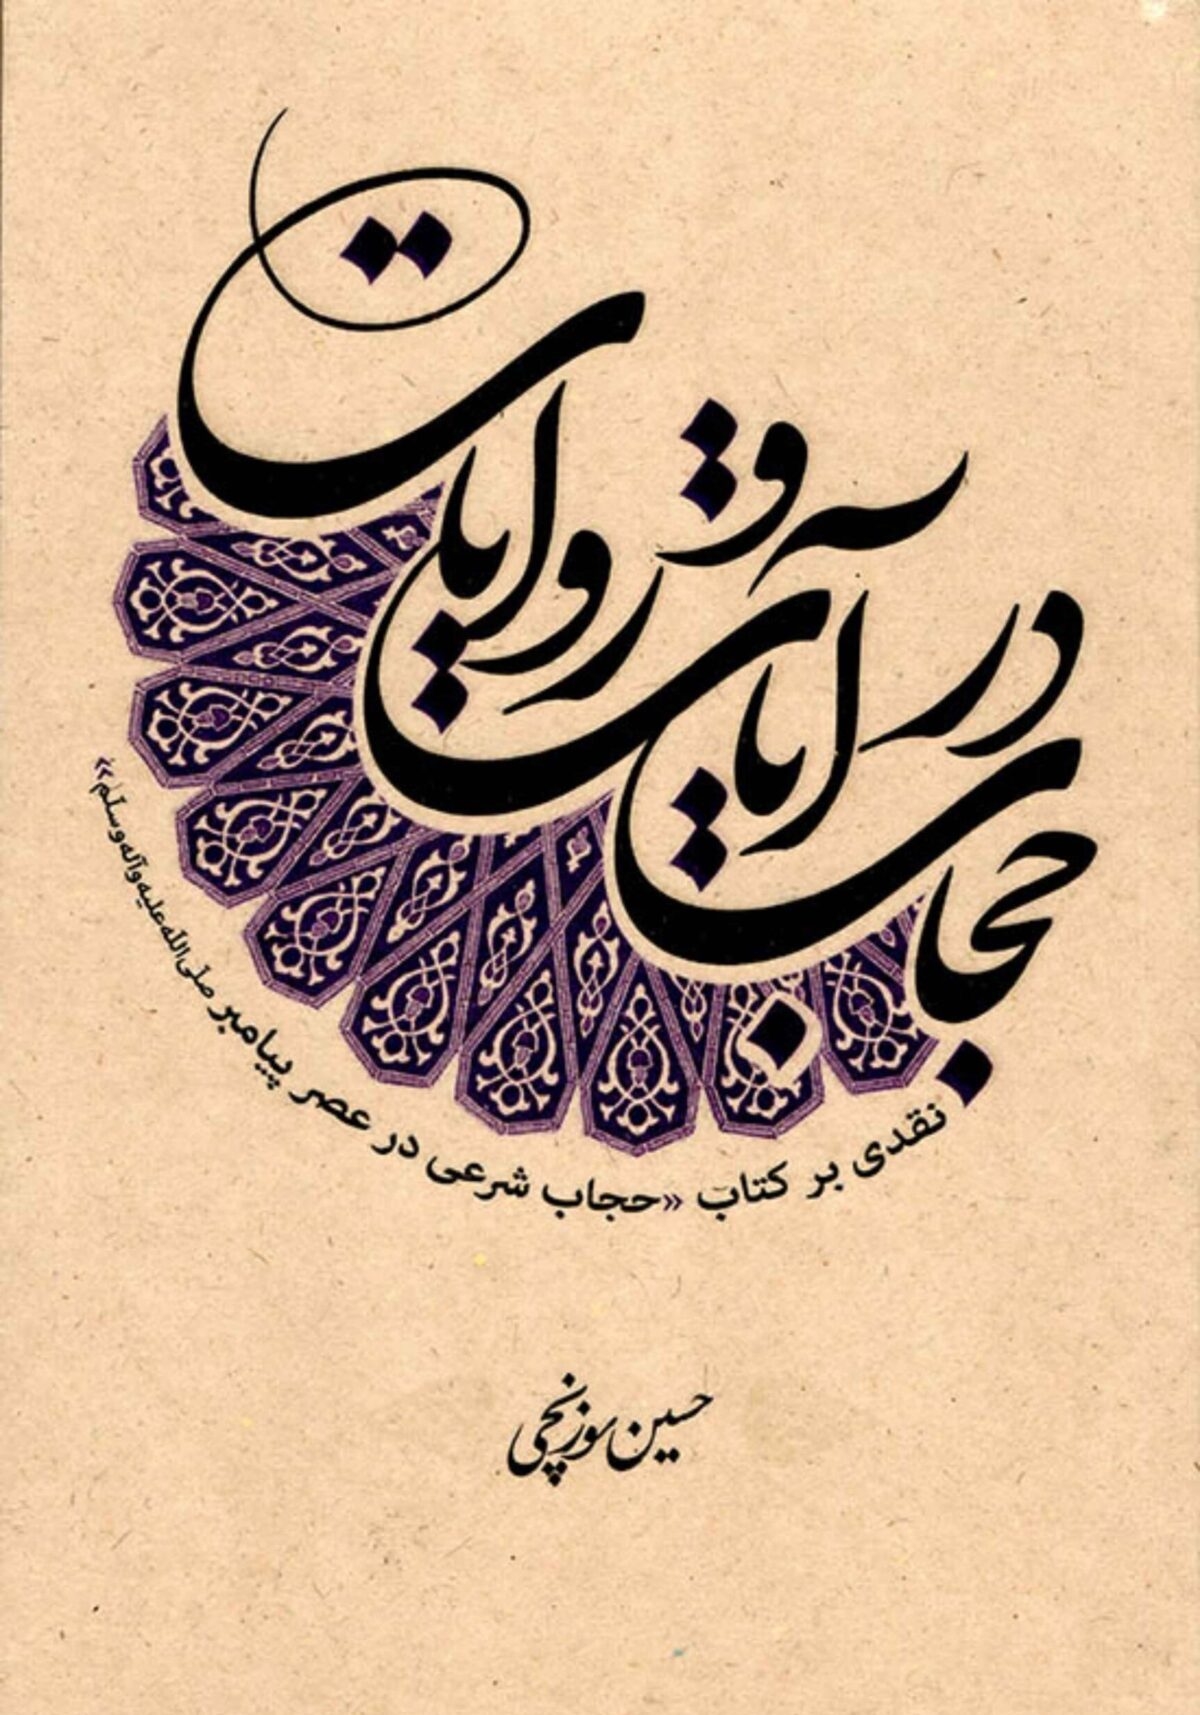 حجاب در آیات و روایات
نقدی بر کتاب «حجاب شرعی در عصر پیامبر صلّی‌الله‌علیه‌وآله‌وسلّم»
حسین سوزنچی